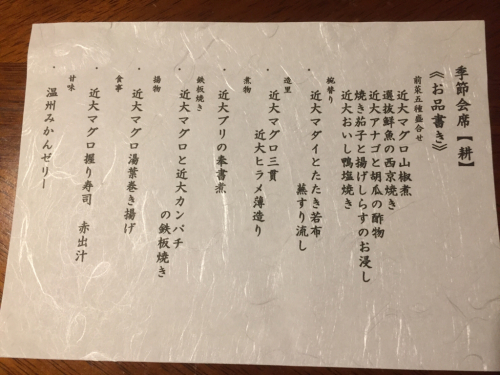 季節会席【耕】
《お品書き》
前菜五種盛合せ
近大マグロ山椒煮
選抜鮮魚の西京焼き
近大アナゴと胡瓜の酢物
焼き茄子と揚げしらすのお浸し
近大おいし鴨塩焼き
・椀替り
近大マダイとたたき若布
蒸すり流し
・造里
近大マグロ三貫
近大ヒラメ薄造り
・煮物
近大ブリの奉書煮
・鉄板焼き
近大マグロと近大カンパチ
の鉄板焼き
・揚物
近大マグロ湯葉巻き揚げ
・食事
近大マグロ握り寿司 赤出汁
・甘味
温州みかんゼリー